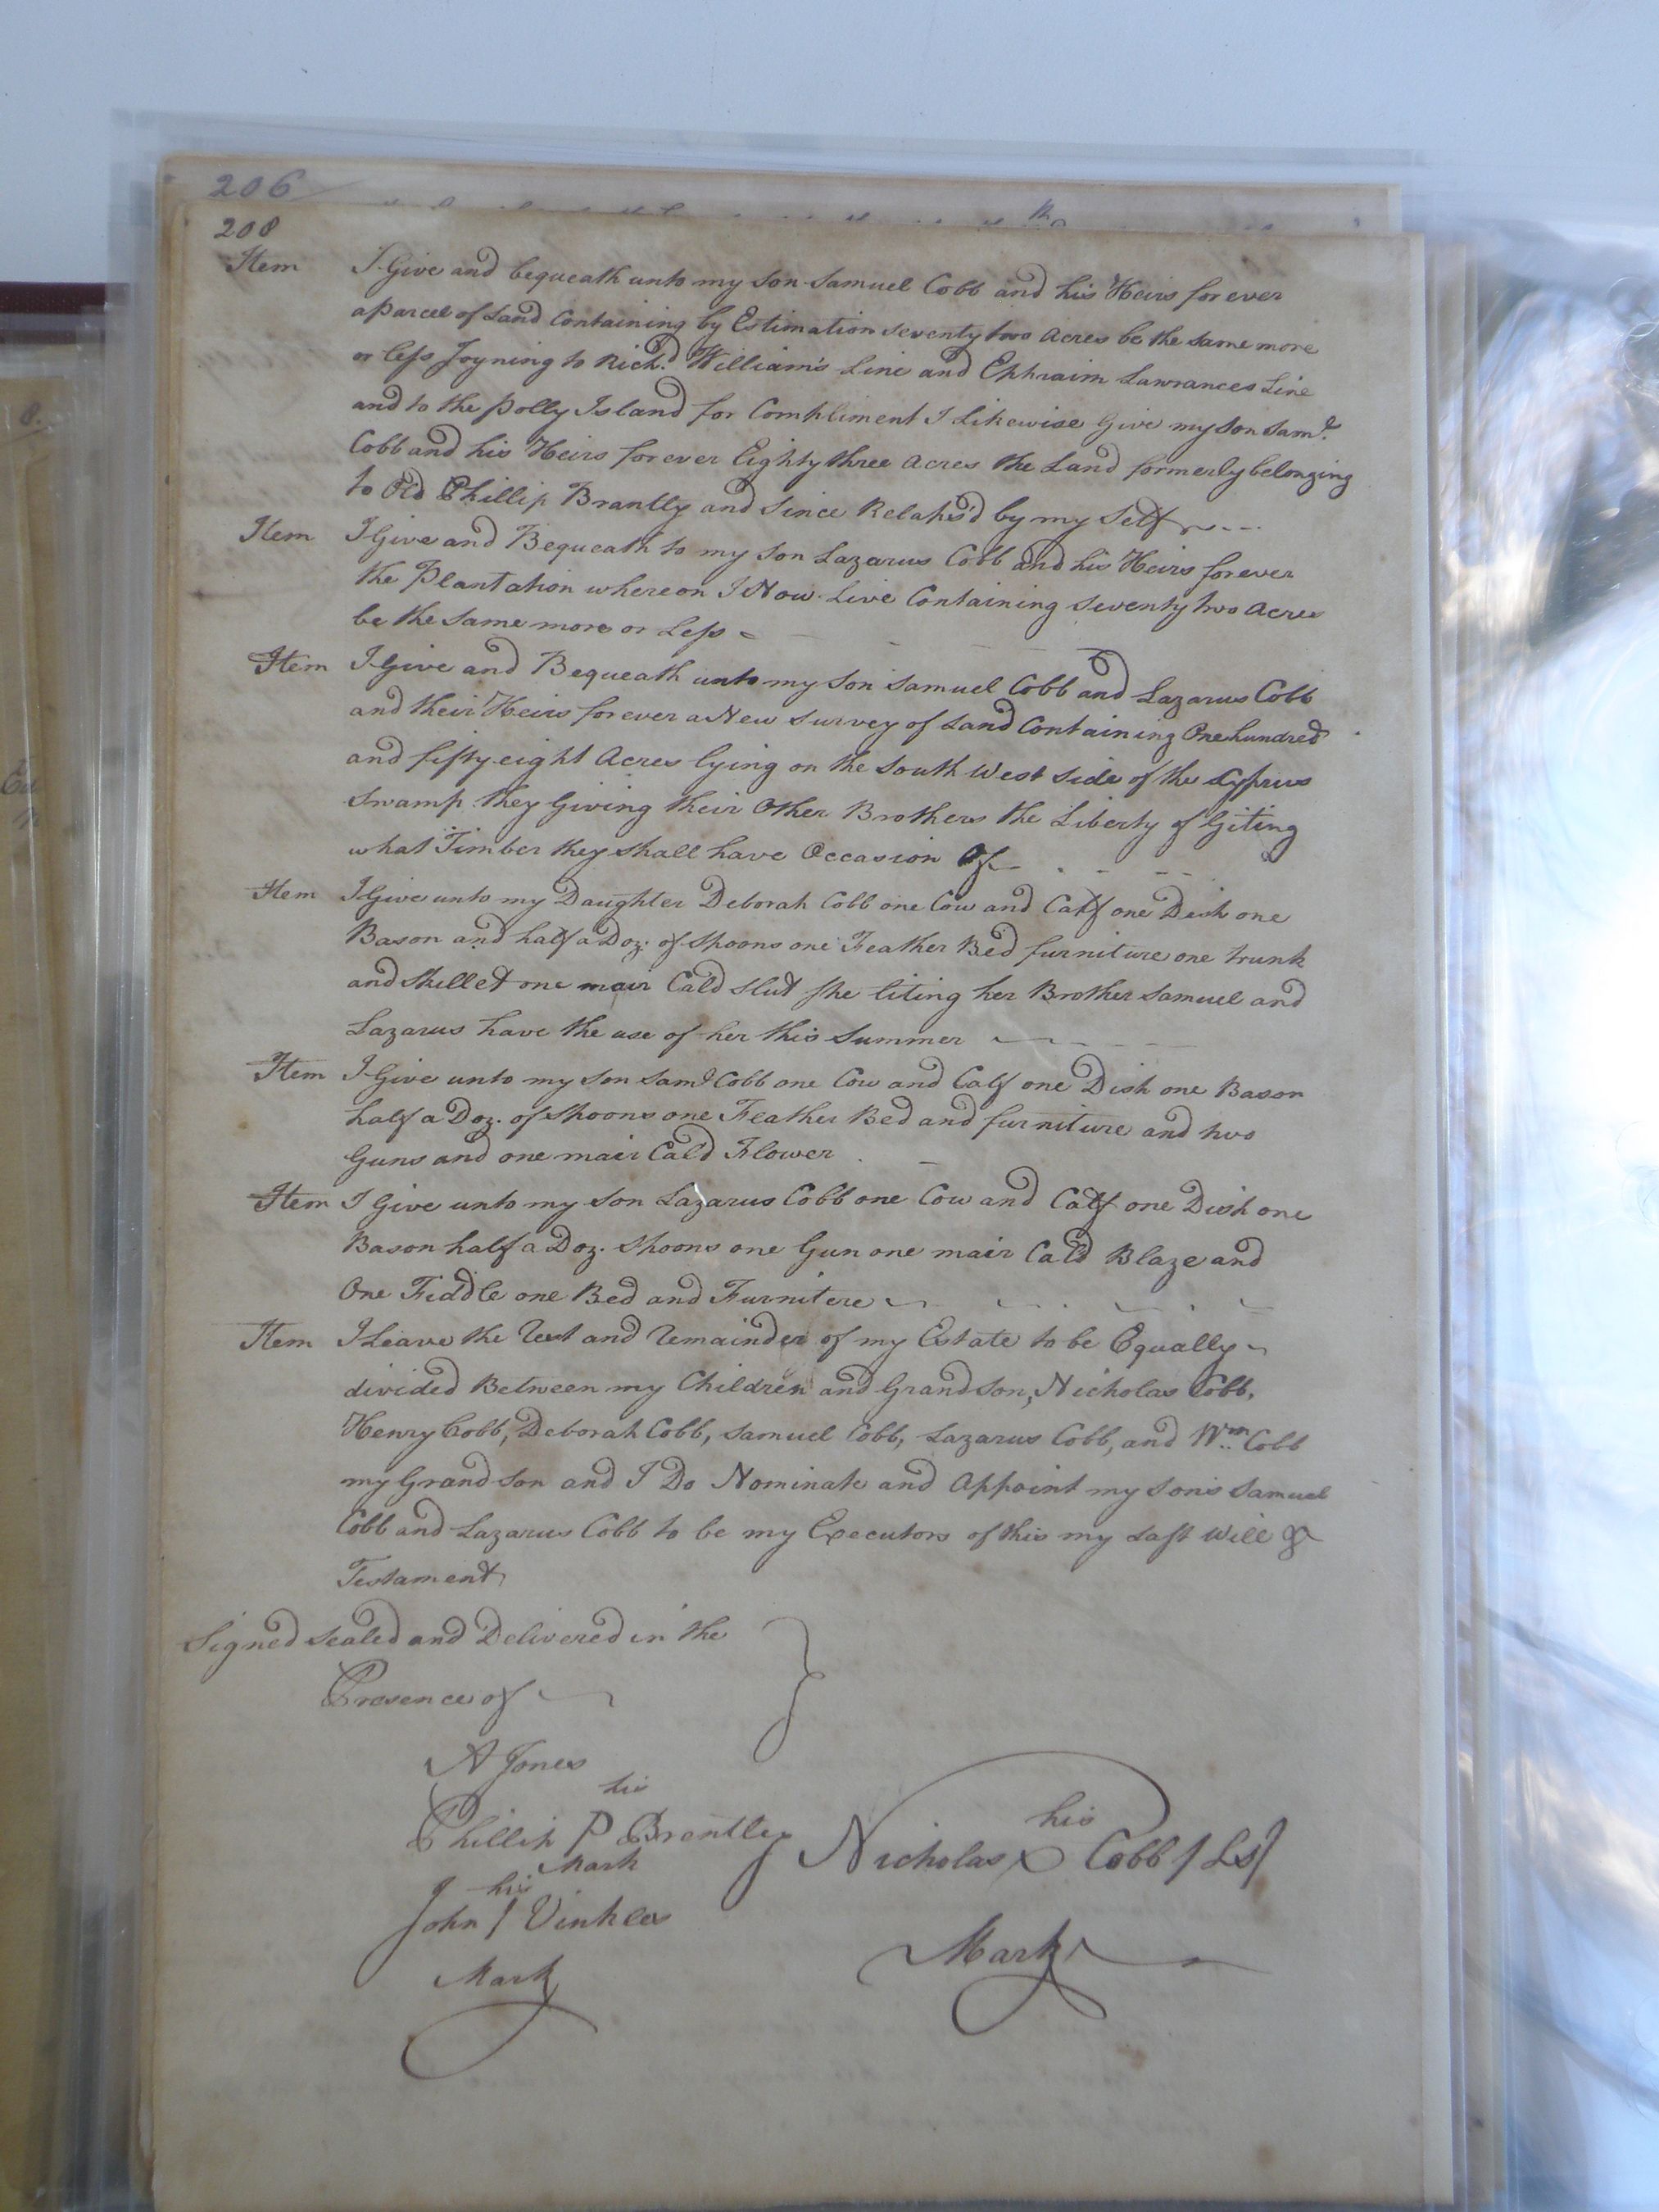 206
208
Item I Give and bequeath unto my Son Samuel Cobb and his Heirs for ever
a Parcel of Land Containing by Estimation seventy two Acres be the same more
or less Joyning to Rich.d William's Line and Ephraim Lawrances Line
and to the Polly Island for Compliment I Likewise Give my Son Sam.l
Cobb and his Heirs for ever Eighty three Acres the Land formerly belonging
to Old Phillip Brantly and Since by my Self
Item I Give and Bequeath to my Son Lazarus Cobb and his Heirs forever
the Plantation whereon I Now Live Containing Seventy two Acres
be the Same more or Less
Item I Give and Bequeath unto my Son Samuel Cobb and Lazarus Cobb
and their Heirs for ever a New Survey of Land Containing One hundred
and fifty eight Acres lying on the South West Side of the Cyprus
Swamp they Giving their Other Brothers the Liberty of Giting
what Timber they shall have Occasion Of
Item I Give unto my Daughter Deborah Cobb one Cow and Calf one Dish one
Bason and half a Doz. of Spoons one Feather Bed furniture one trunk
and Skillet one mair Cald Slut She liting her Brother Samuel and
Lazarus have the use of her this Summer
Item I Give unto my Son Sam.l Cobb one Cow and Calf one Dish one Bason
half a Doz. of Spoons one Feather Bed and furniture and two
Guns and one mair Cald Flower
Item I Give unto my Son Lazarus Cobb one Cow and Calf one Dish one
Bason half a Doz. Spoons one Gun one mair Cald Blaze and
One Fiddle one Bed and Furnitere
Item I Leave the Rest and Remainder of my Estate to be Equally
divided Between my Children and Grandson, Nicholas Cobb,
Henry Cobb, Deborah Cobb, Samuel Cobb, Lazarus Cobb, and Wm. Cobb
my Grandson and I Do Nominate and Appoint my Sons Samuel
Cobb and Lazarus Cobb to be my Executors of this my Last Will &
Testament
Signed Sealed and Delivered in the
Presence of
A Jones
his
Phillip P Brantley Nicholas his X Cobb (LS)
Mark
his
John J Vinkles
Mark Mark